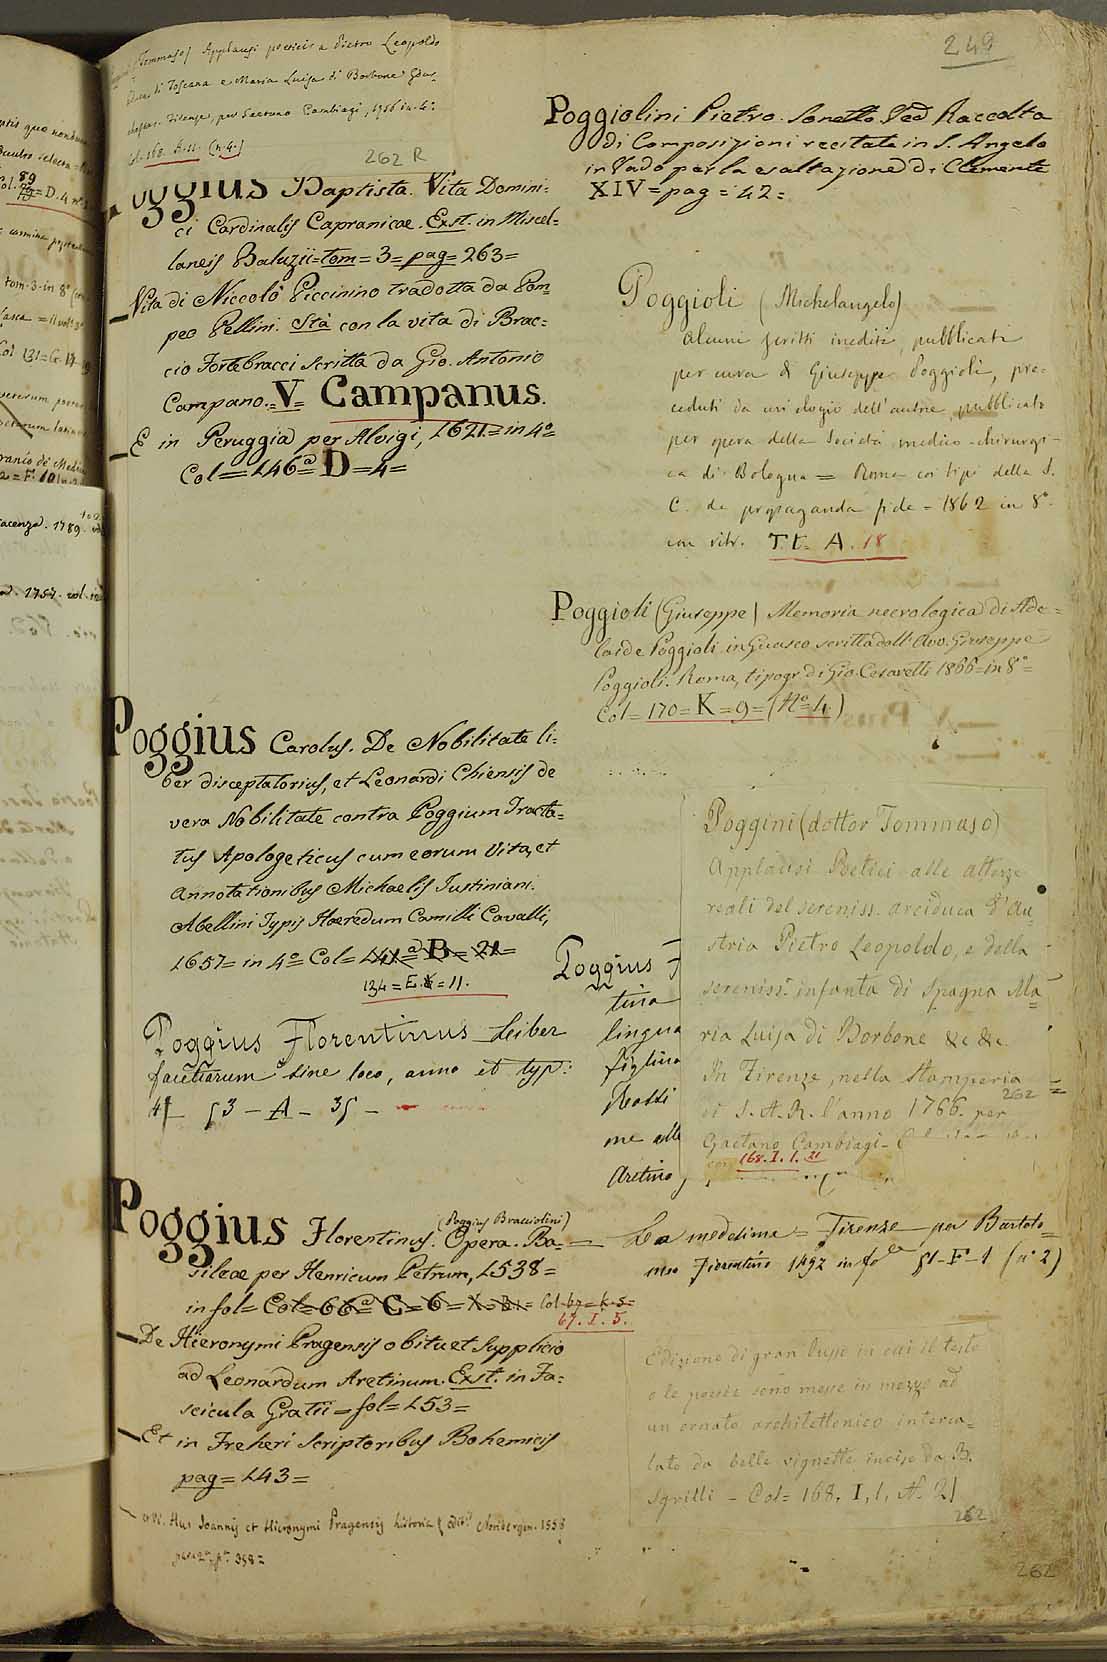 249
Tommaso) Applausi poetici a Pietro Leopoldo
di Toscana e Maria Luisa di Borbone
Firenze, per Gaetano Cambiagi, 1766 in 4°
Col. 168. (n. 4.)
262 R
oggius Baptista. Vita Domini=
ci Cardinalis Capranicae. Exst. in Miscel=
laneis Baluzii=tom=3=pag=263=
Vita di Niccolò Piccinino tradotta da Pom=
peo Pellini. Stà con la vita di Brac=
cio Fortebracci scritta da Gio. Antonio
Campano. =V= Campanus.
E in Peruggia per Alvigi, 1621=in 4°=
Col=146a D=4=
Poggius Carolus. De Nobilitate li=
ber disceptatorius, et Leonardi Chiensis de
vera Nobilitate contra Poggium Tracta=
tus Apologeticus cum eorum Vita, et
Annotationibus Michaelis Justiniani.
Abellini Typis Haeredum Camilli Cavalli,
1657= in 4° Col= 141a= B= 21=
134= E. = 11.
Poggius Florentinus Leiber
facetiarum sine loco, anno et typ:
4f - A -
Poggius Florentinus. Opera. Ba=
(Poggius Bracciolini)
sileae per Henricum Petrum, 1538=
in fol= Col=66a= C=6= Col 67=K=5=
67. I. 5.
De Hieronymi Pragensis obitu et supplicio
ad Leonardum Aretinum. Exst. in Fa=
scicula Gratii=fol=153=
Et in Freheri Scriptoribus Bohemicis
pag=143=
Hus Joannis et Hieronymi Pragensis historia Noribergen. 1558
358=
Poggiolini Pietro. Sonetto. Ved Raccolta
di Composizioni recitate in S. Angelo
in Vado per la esaltazione di Clemente
XIV=pag=42=
Poggioli (Michelangelo)
alcuni scritti inediti, pubblicati
per cura di Giuseppe Poggioli, pre=
ceduti da un elogio dell'autore, pubblicato
per opera della Società medico-chirurgi-
ca di Bologna = Roma coi tipi della S.
C. de propaganda fide = 1862 in 8°.
con ritr. T.t. A. 18
Poggioli (Giuseppe) Memoria necrologica di Ade=
laide Poggioli in Guasco scritta dall'Avv. Giuseppe
Poggioli. Roma, tipogr di Gio. Cesaretti 1866=in 8°=
Col=170=K=9=(N°=4)
Poggini (dottor Tommaso)
Applausi Poetici alle altezze
reali del sereniss. arciduca d'Au=
stria Pietro Leopoldo, e della
sereniss. infanta di Spagna Ma=
ria Luisa di Borbone &c &c.
In Firenze, nella stamperia
di S. A. R. l'anno 1766. per
Gaetano Cambiagi-
168. I. 1. 21
262
Poggius
tina
lingua
figlino
Rossi
me alle
Aretino,
La medesima = Firenze per Bartolo=
meo Fiorentino 1492 in fo - F - 1 (n° 2)
Edizione di gran lusso in cui il testo
e le poesie sono messe in mezzo ad
un ornato architettonico interca=
lato da belle vignette incise da B.
Sgrilli - Col= 168. I, 1, N. 21
262
262